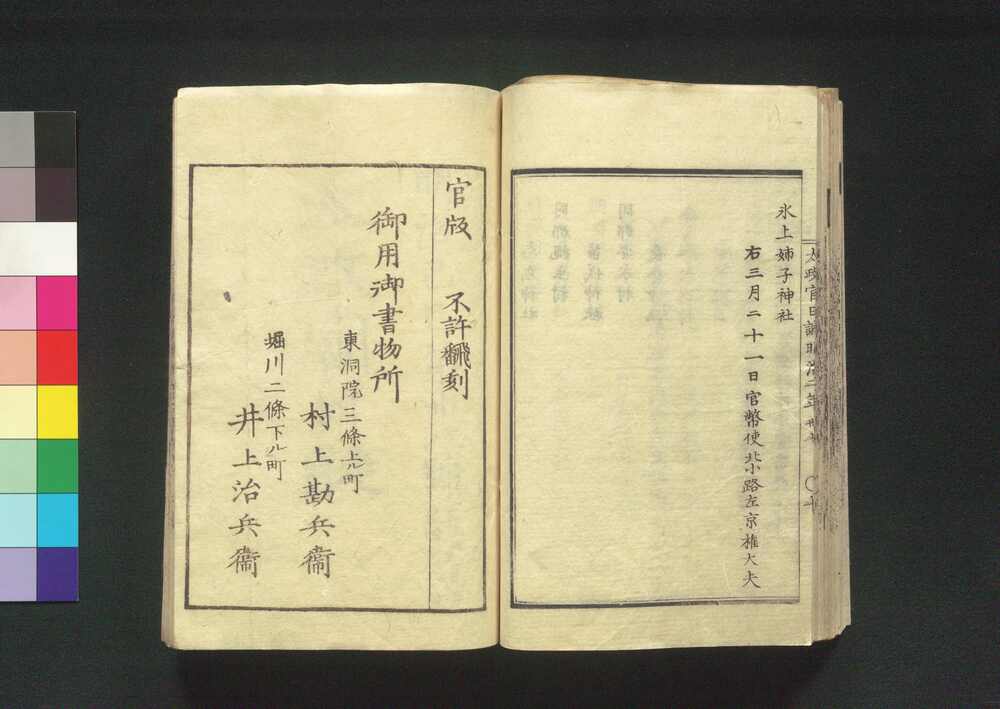 太政官日誌明治二年
氷上姉子神社
右三月二十一日官幣使北小路左京権大夫
官版 不許飜刻
御用御書物所
東洞院三條上ル町
村上勘兵衞
堀川二條下ル町
井上治兵衞